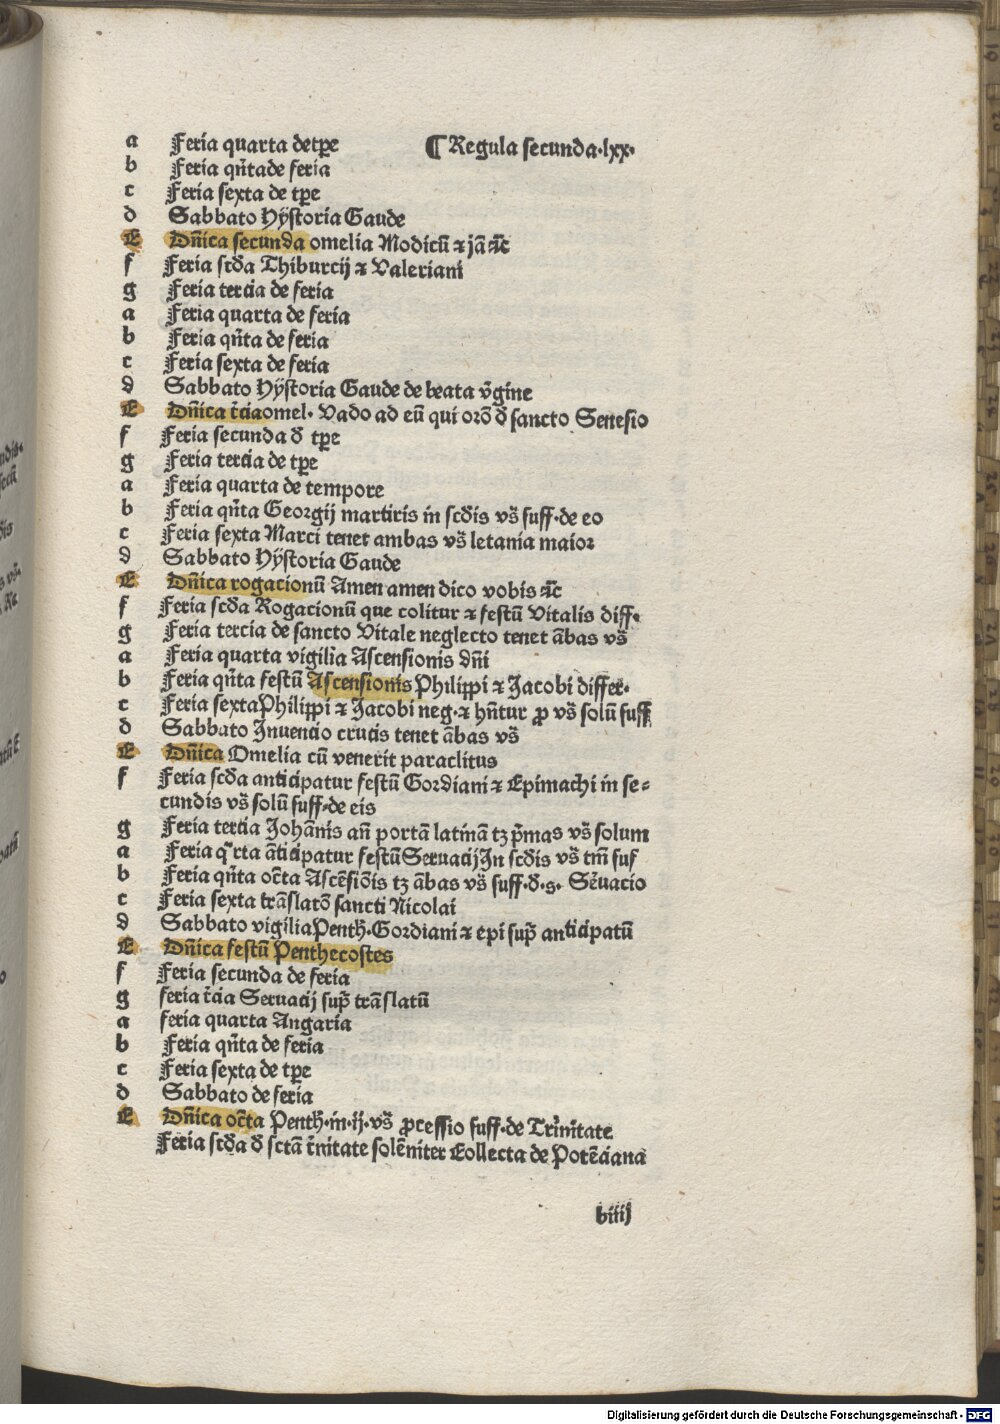 a Feria quarta detꝑe ¶ Regula secunda·lxx·
b Feria qn̄tade feria
c Feria sexta de tꝑe
d Sabbato Hÿstoria Gaude
E Dn̄ica secunda omelia Modicū ⁊ jā ⁊c̄
f Feria scd̄a Thiburcij ⁊ Valeriani
g Feria tercia de feria
a Feria quarta de feria
b Feria qn̄ta de feria
c Feria sexta de feria
d Sabbato Hÿstoria Gaude de beata v̄gine
E Dn̄ica t̄ciaomel· Vado ad eū qui orō đ sancto Senesio
f Feria secunda đ tꝑe
g Feria tercia de tꝑe
a Feria quarta de tempore
b Feria qn̄ta Georgij martiris in scd̄is vs̄ suff·de eo
c Feria sexta Marci tenet ambas vs̄ letania maior
d Sabbato Hÿstoria Gaude
E Dn̄ica rogacionū Amen amen dico vobis ⁊c̄
f Feria scd̄a Rogacionū que colitur ⁊ festū Vitalis diff·
g Feria tercia de sancto Vitale neglecto tenet ābas vs̄
a Feria quarta vigilia Ascensionis dn̄i
b Feria qn̄ta festū Ascensionis Philippi ⁊ Jacobi differ·
c Feria sextaPhilippi ⁊ Jacobi neg·⁊ hn̄tur ꝑ vs̄ solū suff
d Sabbato Inuencio crucis tenet ābas vs̄
E Dn̄ica Omelia cū venerit paraclitus
f Feria scd̄a anticipatur festū Gordiani ⁊ Epimachi in se⸗
cundis vs̄ solū suff·de eis
g Feria tercia Johānis an̄ portā latinā tʒ p̄mas vs̄ solum
a Feria qᵃrta āticipatur festūSeruacijIn scd̄is vs̄ tm̄ suf
b Feria qn̄ta oct̄a Ascēsiōis tʒ ābas vs̄ suff·đ·s· Sēuacio
c Feria sexta trāslatō sancti Nicolai
d Sabbato vigiliaPenth̄·Gordiani ⁊ epi sup̄ anticipatū
E Dn̄ica festū Penthecostes
f Feria secunda de feria
g feria t̄cia Seruacij sup̄ trāslatū
a feria quarta Angaria
b Feria qn̄ta de feria
c Feria sexta de tꝑe
d Sabbato de feria
E Dn̄ica oct̄a Penth̄·in·ij·vs̄ ꝓcessio suff·de Trinitate
Feria scd̄a đ sctā t̄nitate solēniter Collecta de Potēciana
biiij
Digitalisierung gefördert durch die Deutsche Forschungsgemeinschaft - DFG